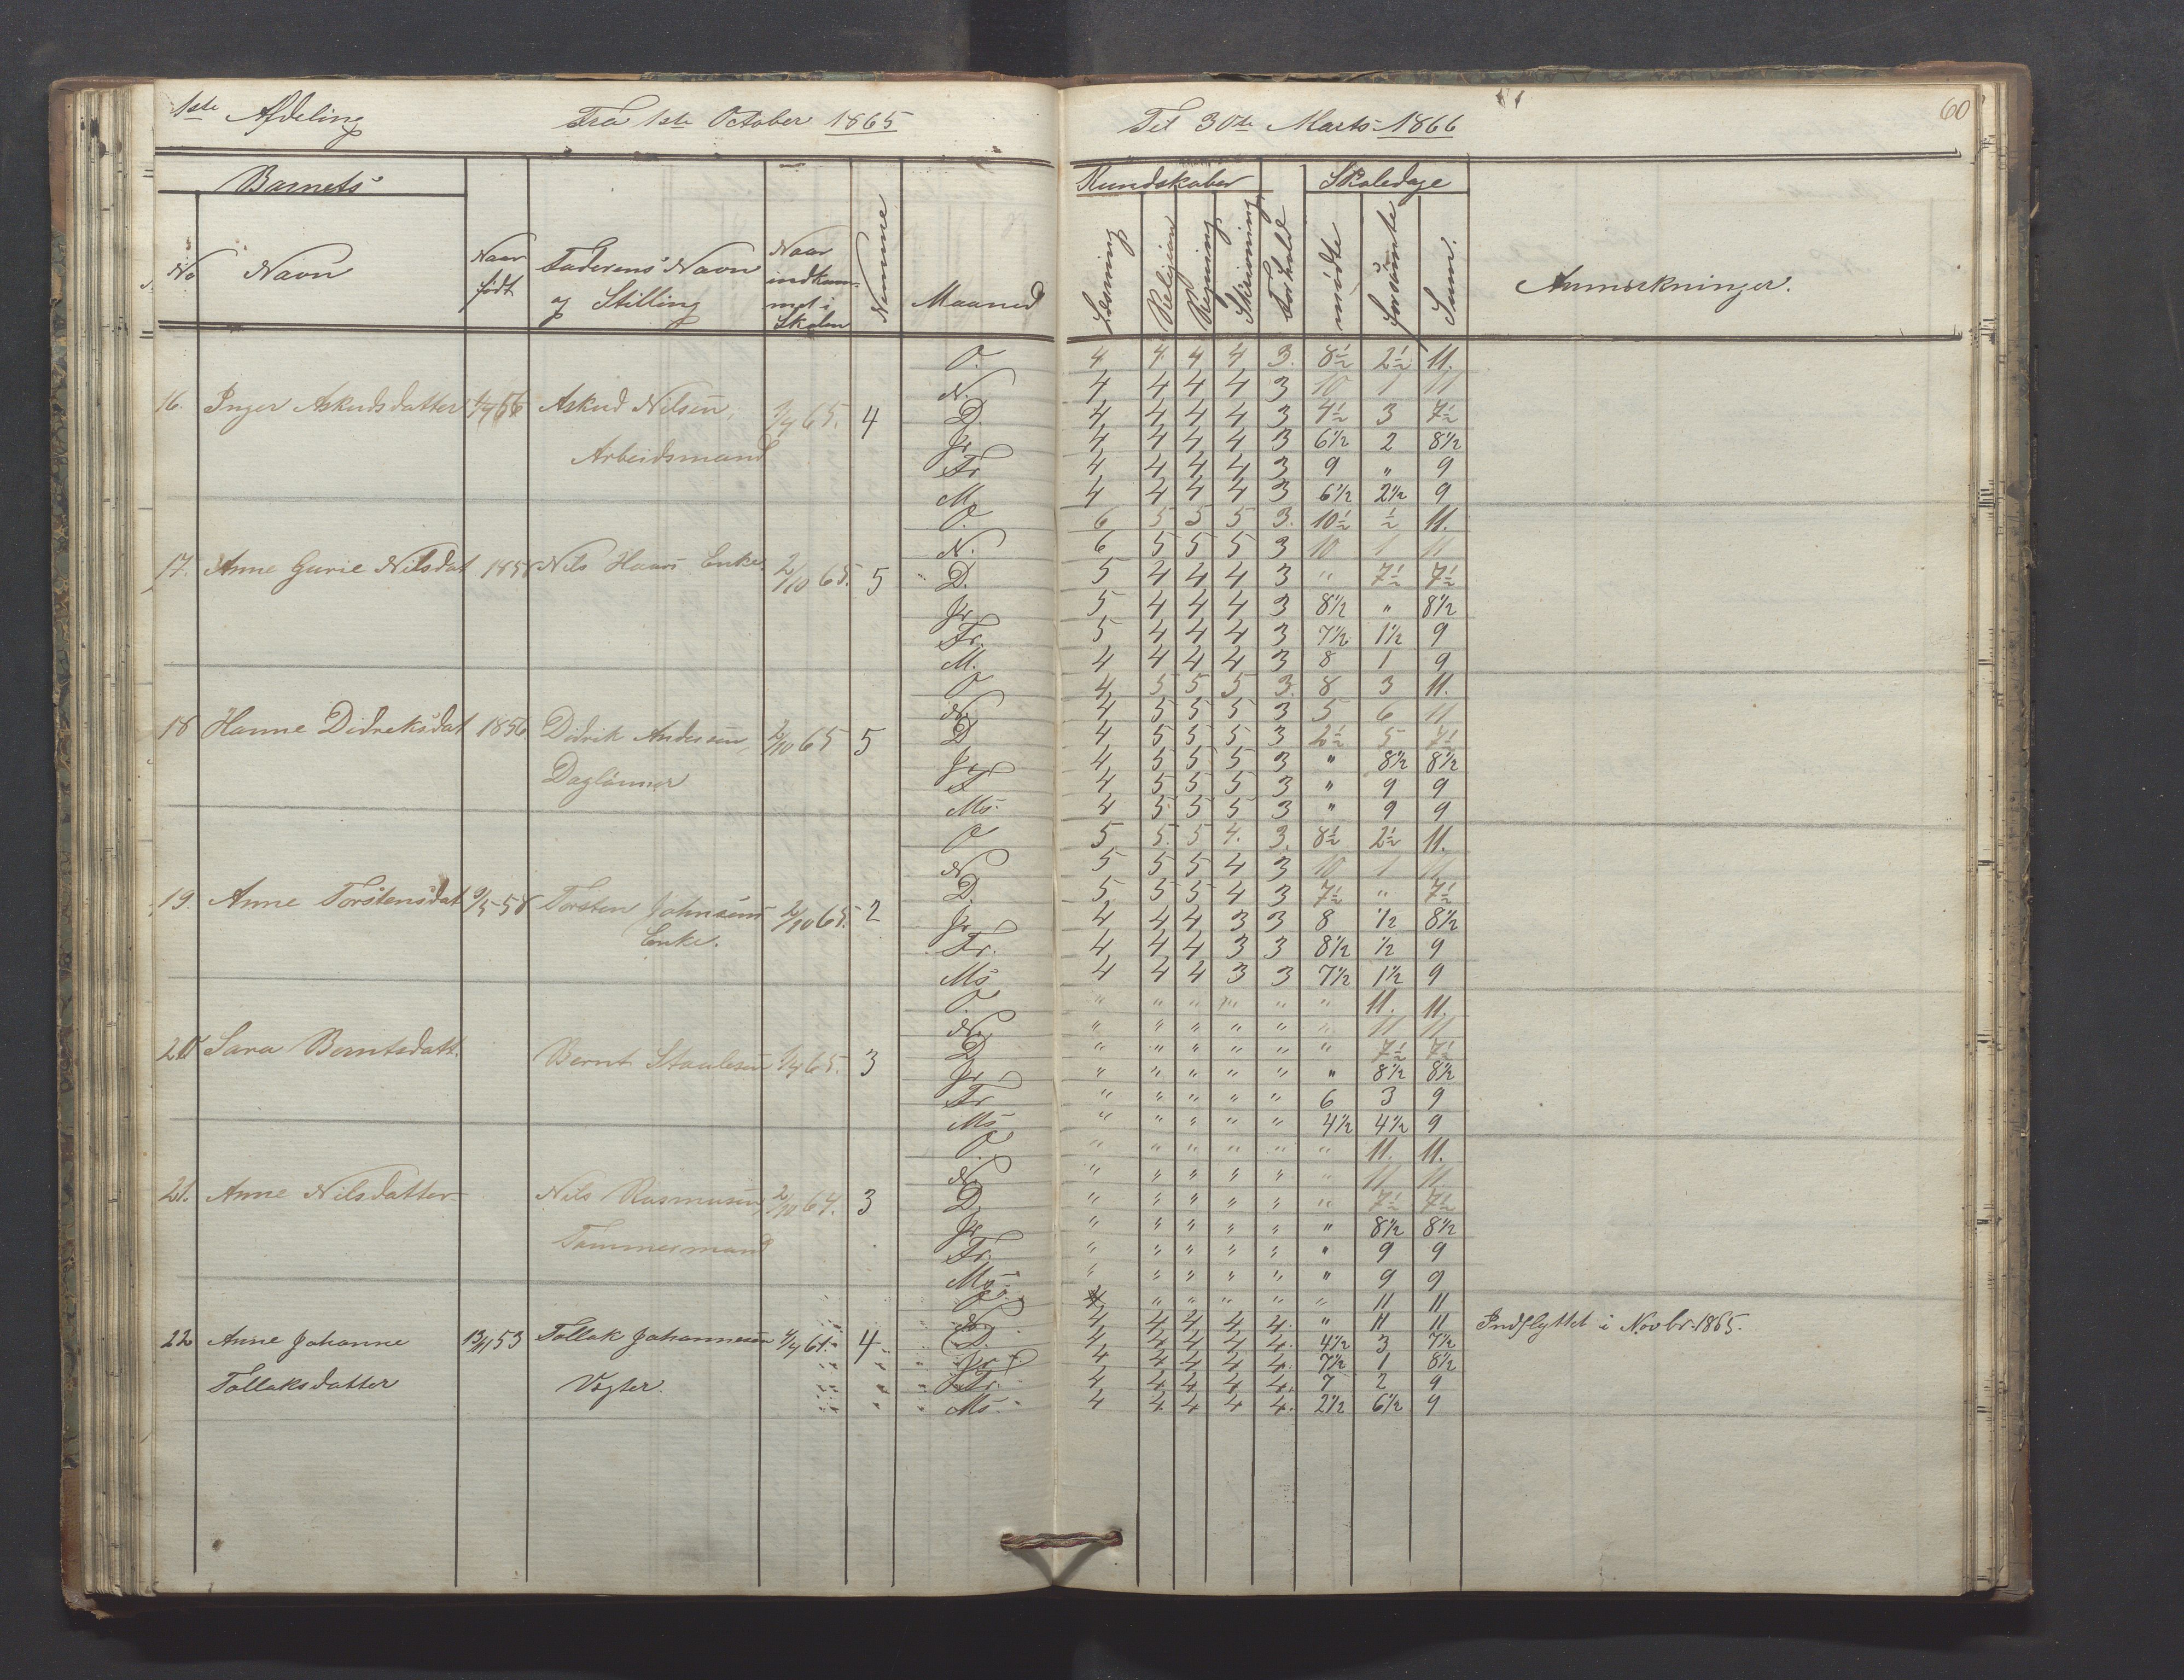 1ste Afdeling Fra 1ste October 1865 Til 30te Marts 1866 60
Barnets Kundskaber Skoledage
No Navn Naar født Faderens Navn og Stilling Naar indkommet i Skolen Nemme Maaned Læsning Religion Regning Skrivning Forhold mødte forsømte Sum. Anmærkninger.
O. 4 4 4 4 3. 8½ 2½ 11.
N. 4 4 4 4 3 10 1 11
16. Inger Askudsdatter 56 Askud Nilsen, 65. 4 D. 4 4 4 4 3 4½ 3 7½
Jr 4 4 4 4 3 6½ 2 8½
Arbeidsmand Fr 4 4 4 4 3 9 " 9
M. 4 4 4 4 3 6½ 2½ 9
O. 6 5 5 5 3. 10½ ½ 11.
N. 6 5 5 5 3 10 1 11
17. Anne Gurie Nilsdat 1858 Nils Enke. 2/10 65. 5 D. 5 4 4 4 3 " 7½ 7½
Jr 5 4 4 4 3 8½ " 8½
Fr. 5 4 4 4 3 7½ 1½ 9
M. 4 4 4 4 3 8 1 9
O 4 5 5 5 3. 8 3 11.
N. 4 5 5 5 3 5 6 11
18 Hanne Didreksdat 1856 Didrik Andersen, 2/10 65 5 D 4 5 5 5 3 2½ 5 7½
Jr 4 5 5 5 3 " 8½ 8½
Daglønner F 4 5 5 5 3 " 9 9
Ms. 4 5 5 5 3 " 9 9
O 5 5. 5 4. 3. 8½ 2½ 11.
N. 5 5 5 4 3 10 1 11
19. Anne Torstensdat 9/5 58 Torsten Johnsens 2/10 65. 2 D. 5 5 5 4 3 7½ " 7½
Jr 4 4 4 3 3 8 ½ 8½
Enke. Fr. 4 4 4 3 3 8½ ½ 9
Ms 4 4 4 3 3 7½ 1½ 9
O. " " " " " " 11. 11.
N. " " " " " " 11 11
20 Sara Berntsdatt. Bernt Staalesen 1/4 65. 3 D " " " " " " 7½ 7½
Jr " " " " " " 8½ 8½
Fr " " " " " 6 3 9
Ms " " " " " 4½ 4½ 9
O. " " " " " " 11. 11.
N. " " " " " " 11 11
21. Anne Nilsdatter Nils Rasmusen, 2/10 64. 3 D. " " " " " " 7½ 7½
Jr " " " " " " 8½ 8½
Tømmermand Fr. " " " " " " 9 9
Ms. " " " " " " 9 9
O. " " " " " 11 11
N. 4 4 4 4 4. " 11 11 Indflyttet i Novbr. 1865.
22 Anne Johanne 13/11 53 Tollak Johannesen 1/4 61. 4 D. 4 4 4 4 4. 4½ 3 7½
Jr 4 4 4 4 4. 7½ 1 8½
Tollaksdatter Vægter. Fr. 4 4 4 4 4. 7 2 9
Ms. 4 4 4 4 4. 2½ 6½ 9